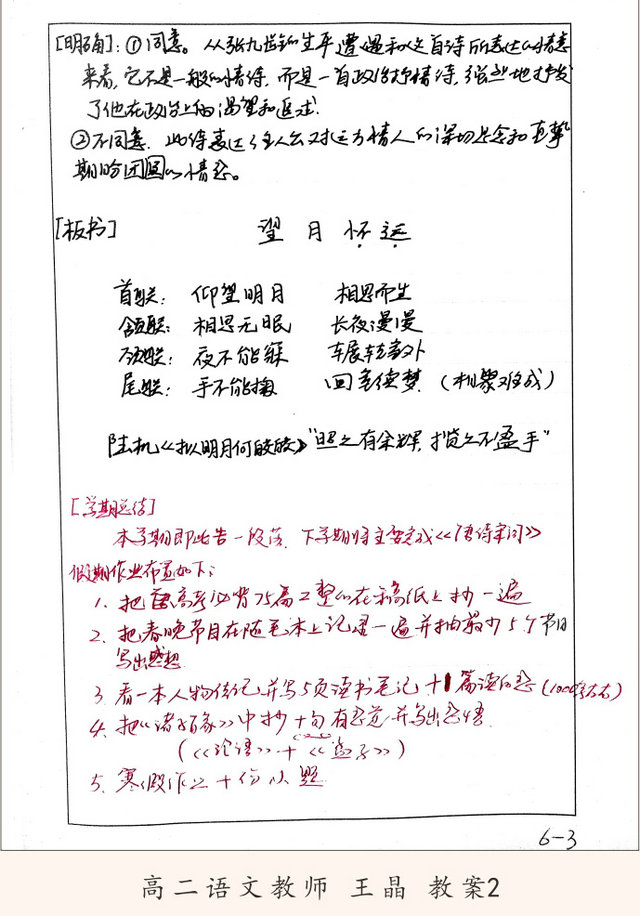 [明确]：①同意。从张九龄的生平遭遇和这首诗所表达的情意
来看，它不是一般的情诗，而是一首政治抒情诗，强烈地抒发
了他在政治上的渴望和追求.
②不同意．此诗表达了主人公对远方情人的深切思念和真挚
期盼团圆的情思。
[板书] 望月怀远
首联：仰望明月 相思而生
颔联：相思无眠 长夜漫漫
颈联：夜不能寐 辗转意外
尾联：手不能掬 回去续梦（相聚难成）
陆机《拟明月何皎皎》“照之有余辉，揽之不盈手”
[学期总结]
本学期即此告一段落．下学期将主要完成《唐诗宋词》
假期作业布置如下：
1. 把高考必背75篇工整的在稿纸上抄一遍
2. 把春晚节目在随笔本上记录一遍并抽最少5个节目
写出感想
3 看一本人物传记，并写5页读书笔记＋1篇读后感（1000字左右）
4. 把《诸子百家》中抄十句有意义，并写出感悟
（《论语》＋《孟子》）
5. 寒假作业十份小题
6-3
高二语文教师 王晶 教案2